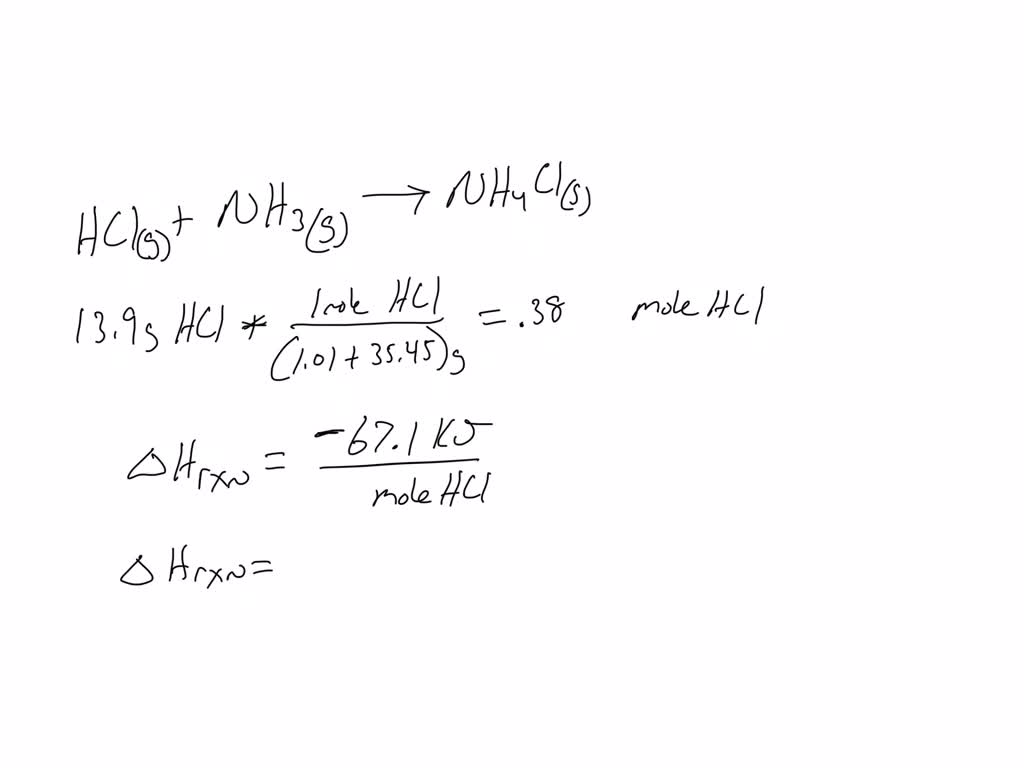 HCl(g) + NH3(g) → NH4Cl(s)
13.9g HCl * 1 mole HCl / (1.01 + 35.45)g = .38 mole HCl
ΔHrxn = -67.1 KJ / mole HCl
ΔHrxn =